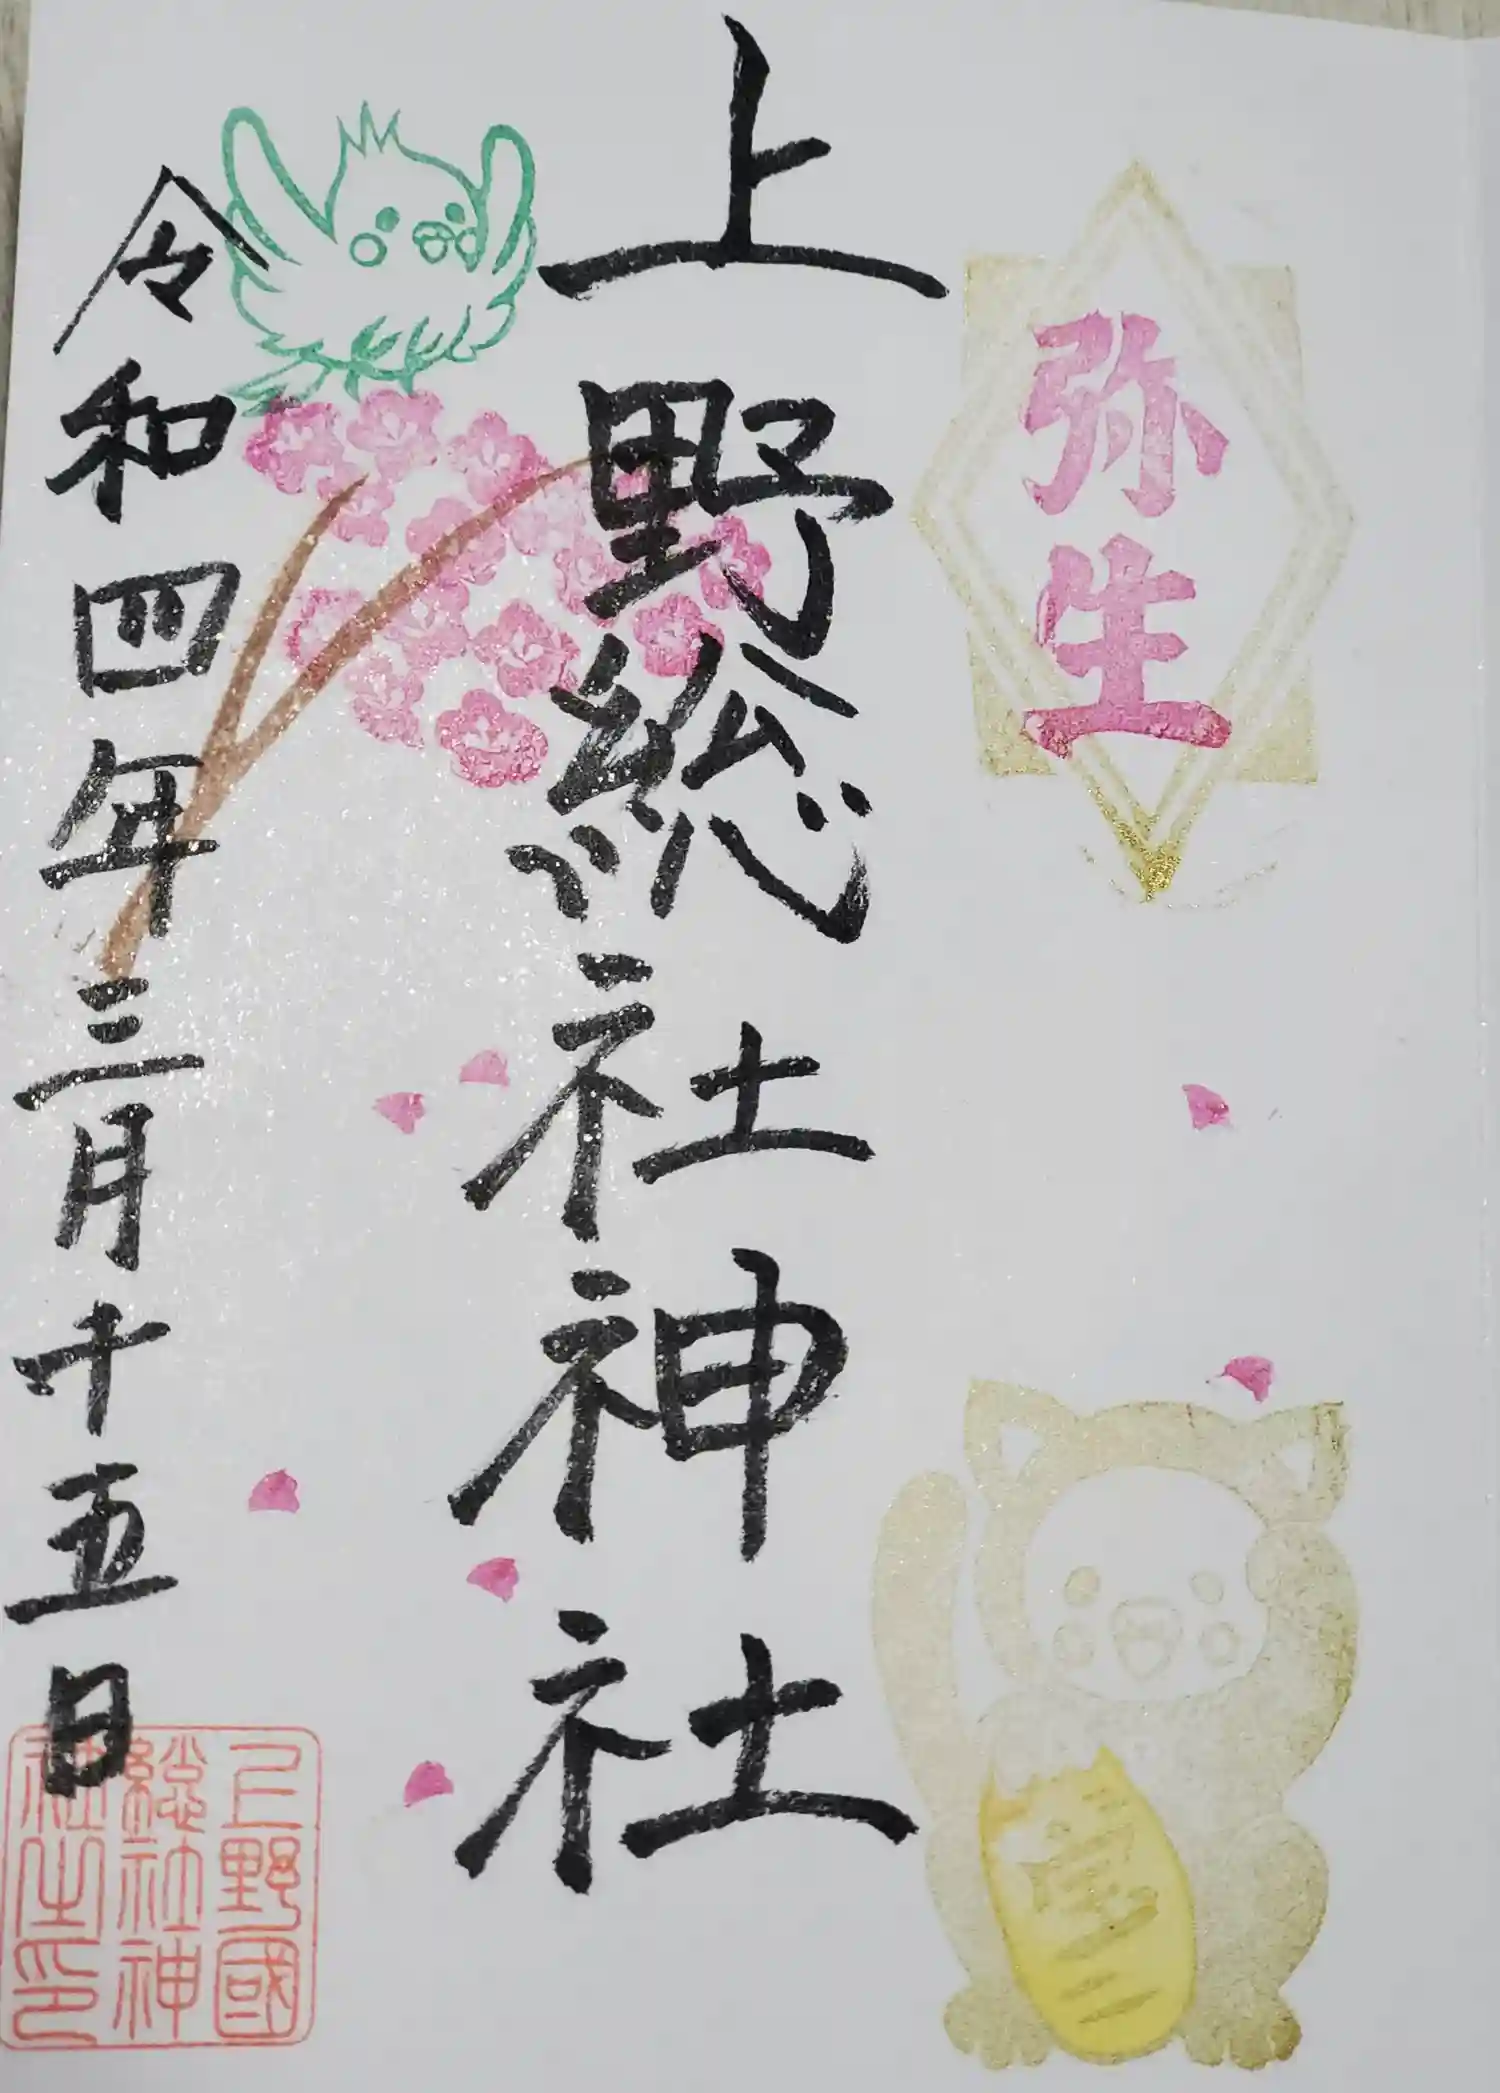 弥生
上野総社神社
令和四年三月十五日
上野國
総社神
社之印